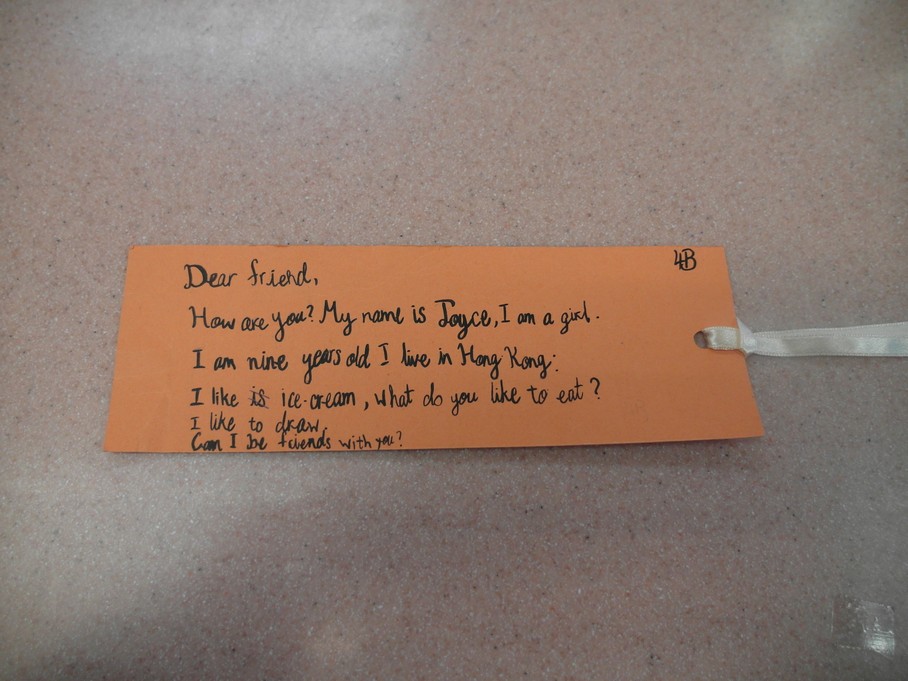 4B
Dear friend,
How are you? My name is Joyce, I am a girl.
I am nine years old I live in Hong Kong.
I like is ice-cream, what do you like to eat?
I like to draw.
Can I be friends with you?